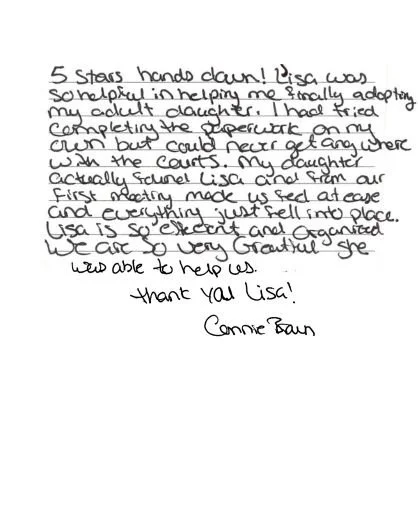 5 Stars hands down! Lisa was
so helpful in helping me finally adopting
my adult daughter. I had tried
completing the paperwork on my
own but could never get anywhere
with the courts. My daughter
actually found Lisa and from our
first meeting made us feel at ease
and everything just fell into place.
Lisa is so efficent and organized
We are so very Greatful she
was able to help us.
thank you Lisa!
Connie